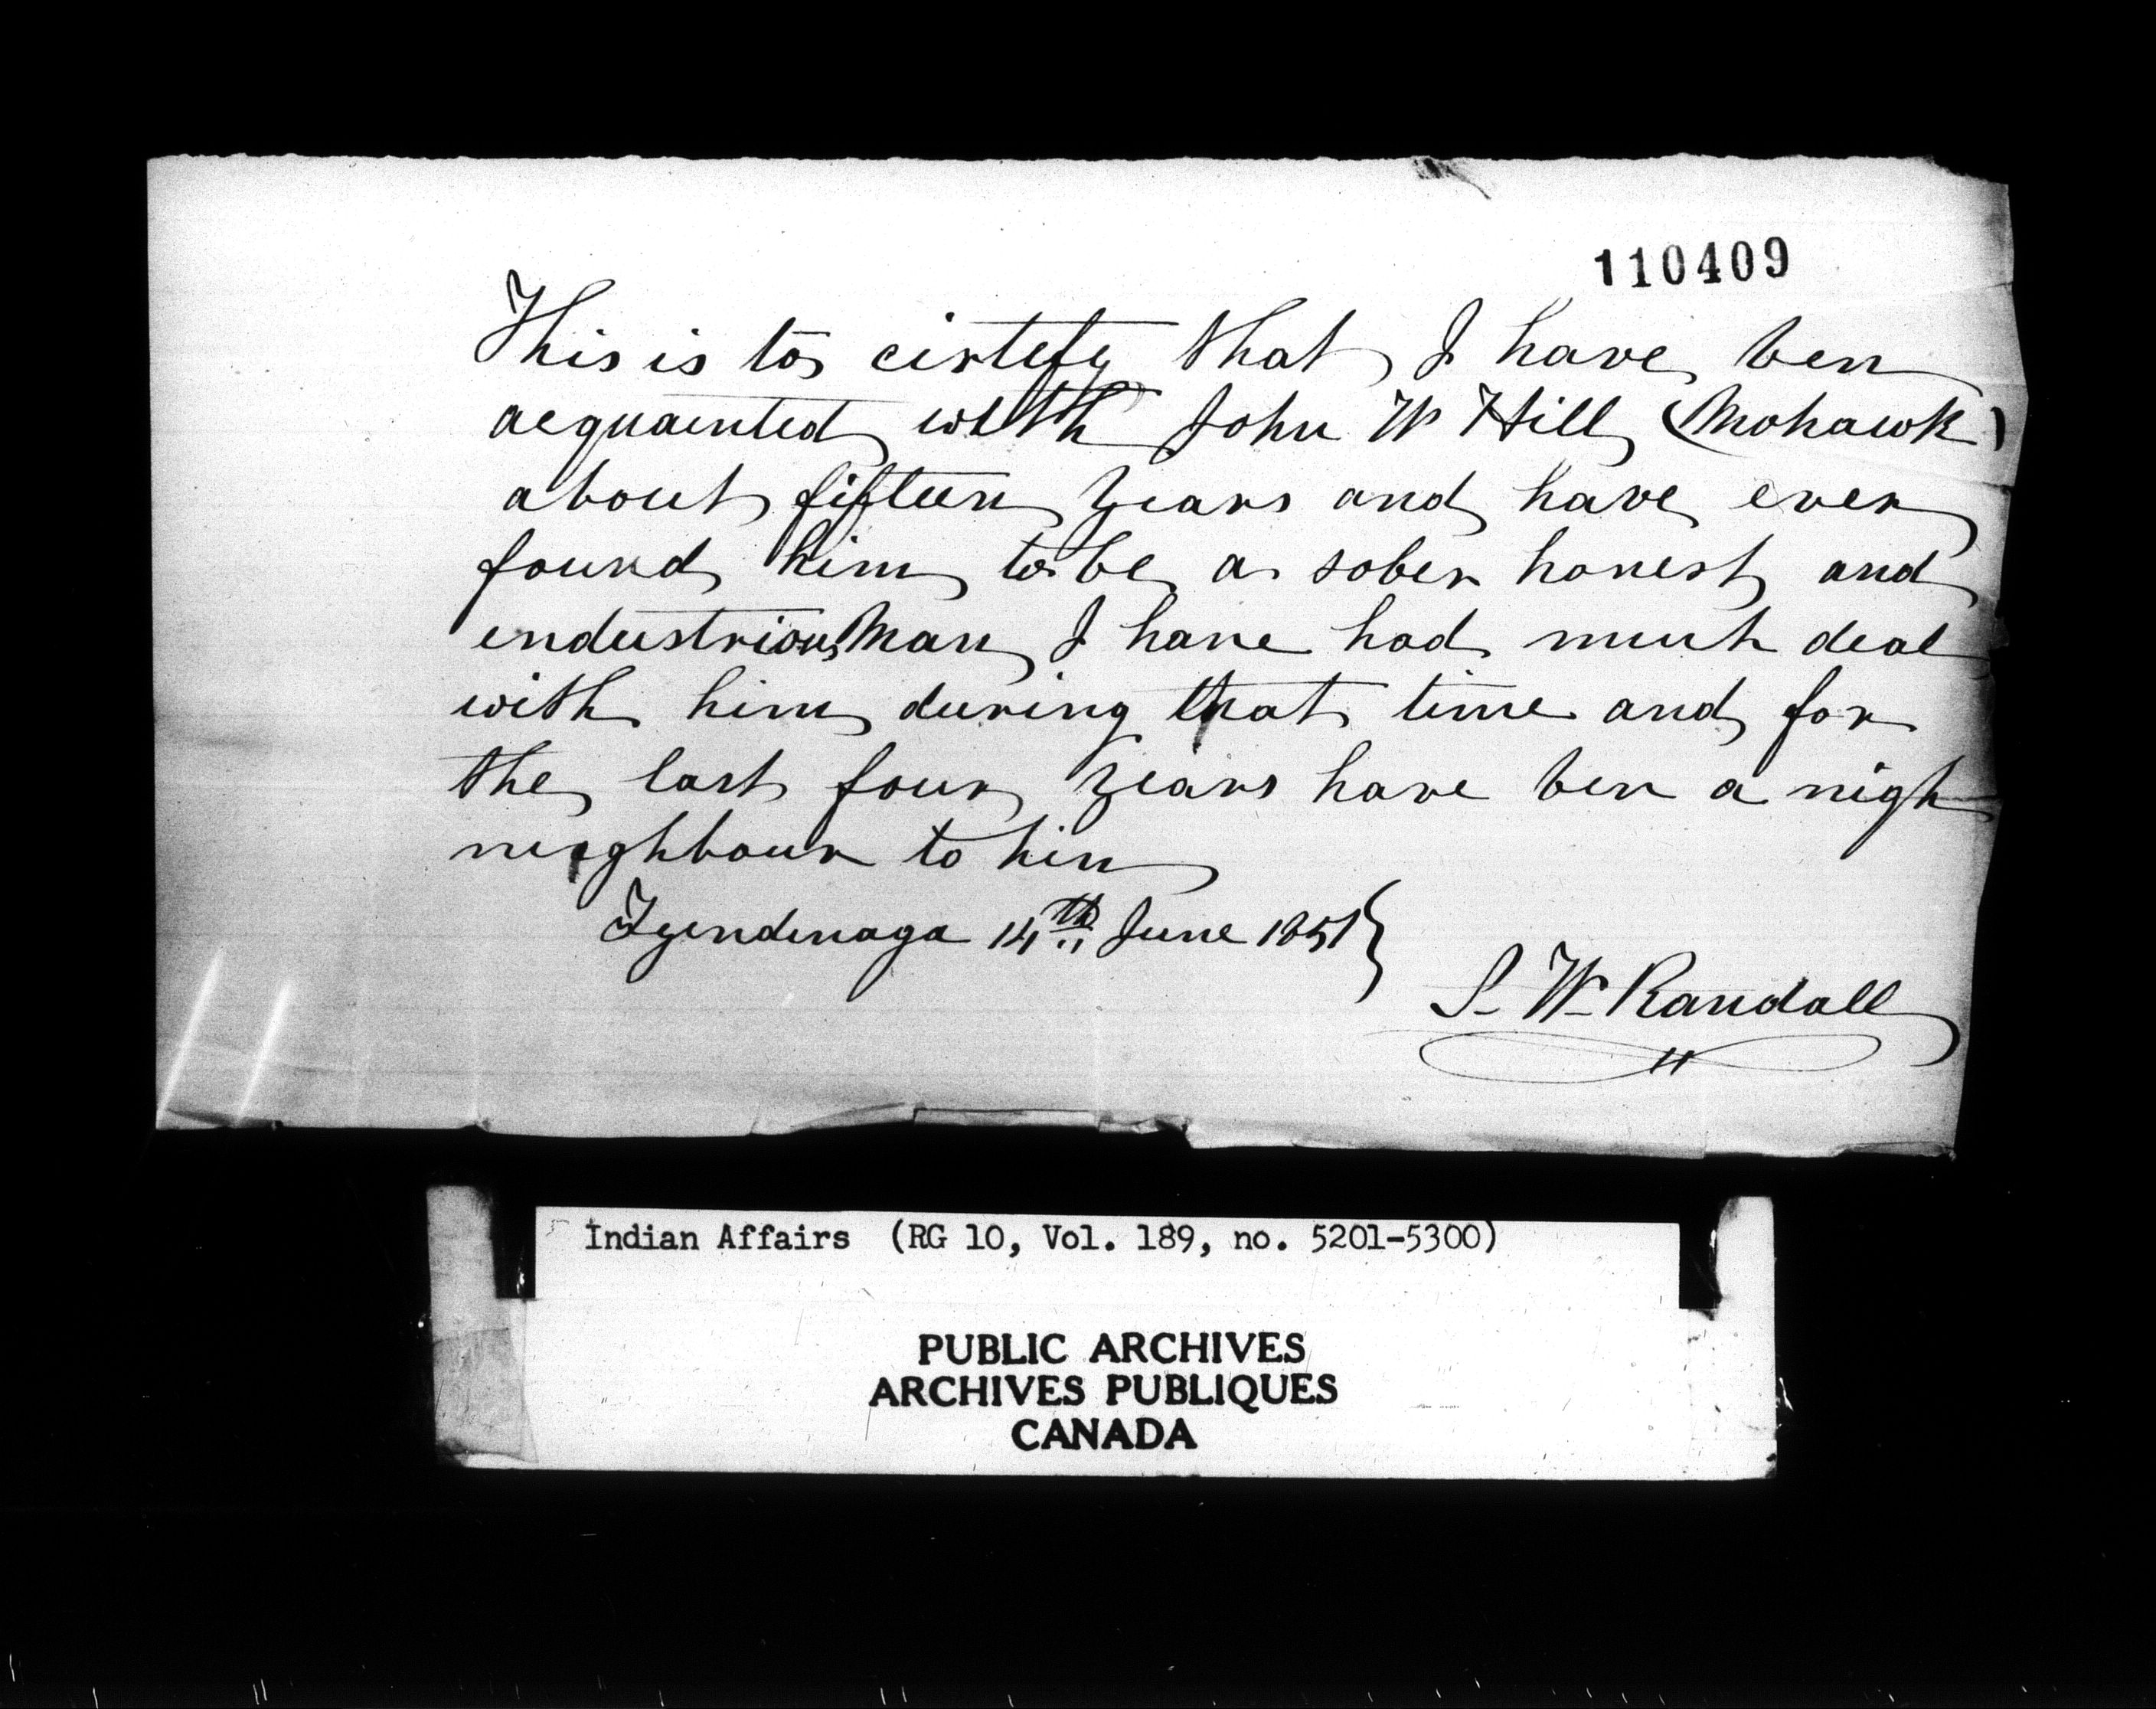 110409
This is to cirtefy that I have ben
acquainted with John W Hill (Mohawk)
about fifteen years and have ever
found him to be a sober honest and
endustrious Man I have had much deal
with him during that time and for
the last four years have ben a nigh
neighbour to him
Tyendenaga 14th June 1851}
S- W- Randall
Indian Affairs (RG 10, Vol. 189, no. 5201-5300)
PUBLIC ARCHIVES
ARCHIVES PUBLIQUES
CANADA